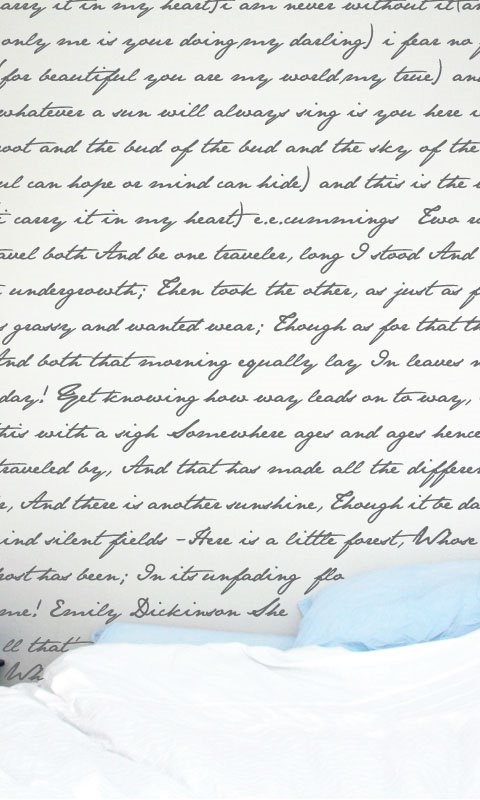 arry it in my heart)i am never without it(an
only me is your doing,my darling) i fear no
(for beautiful you are my world,my true) and
whatever a sun will always sing is you here i
root and the bud of the bud and the sky of the
ul can hope or mind can hide) and this is the
i carry it in my heart) e.e.cummings Two ro
avel both And be one traveler, long I stood And
undergrowth; Then took the other, as just as f
s grassy and wanted wear; Though as for that th
And both that morning equally lay In leaves n
day! Yet knowing how way leads on to way,
this with a sigh Somewhere ages and ages hence
traveled by, And that has made all the differen
r, And there is another sunshine, Though it be da
ind silent fields -Here is a little forest, Whose
rost has been; In its unfading flo
me! Emily Dickinson She
ll that'
Wh